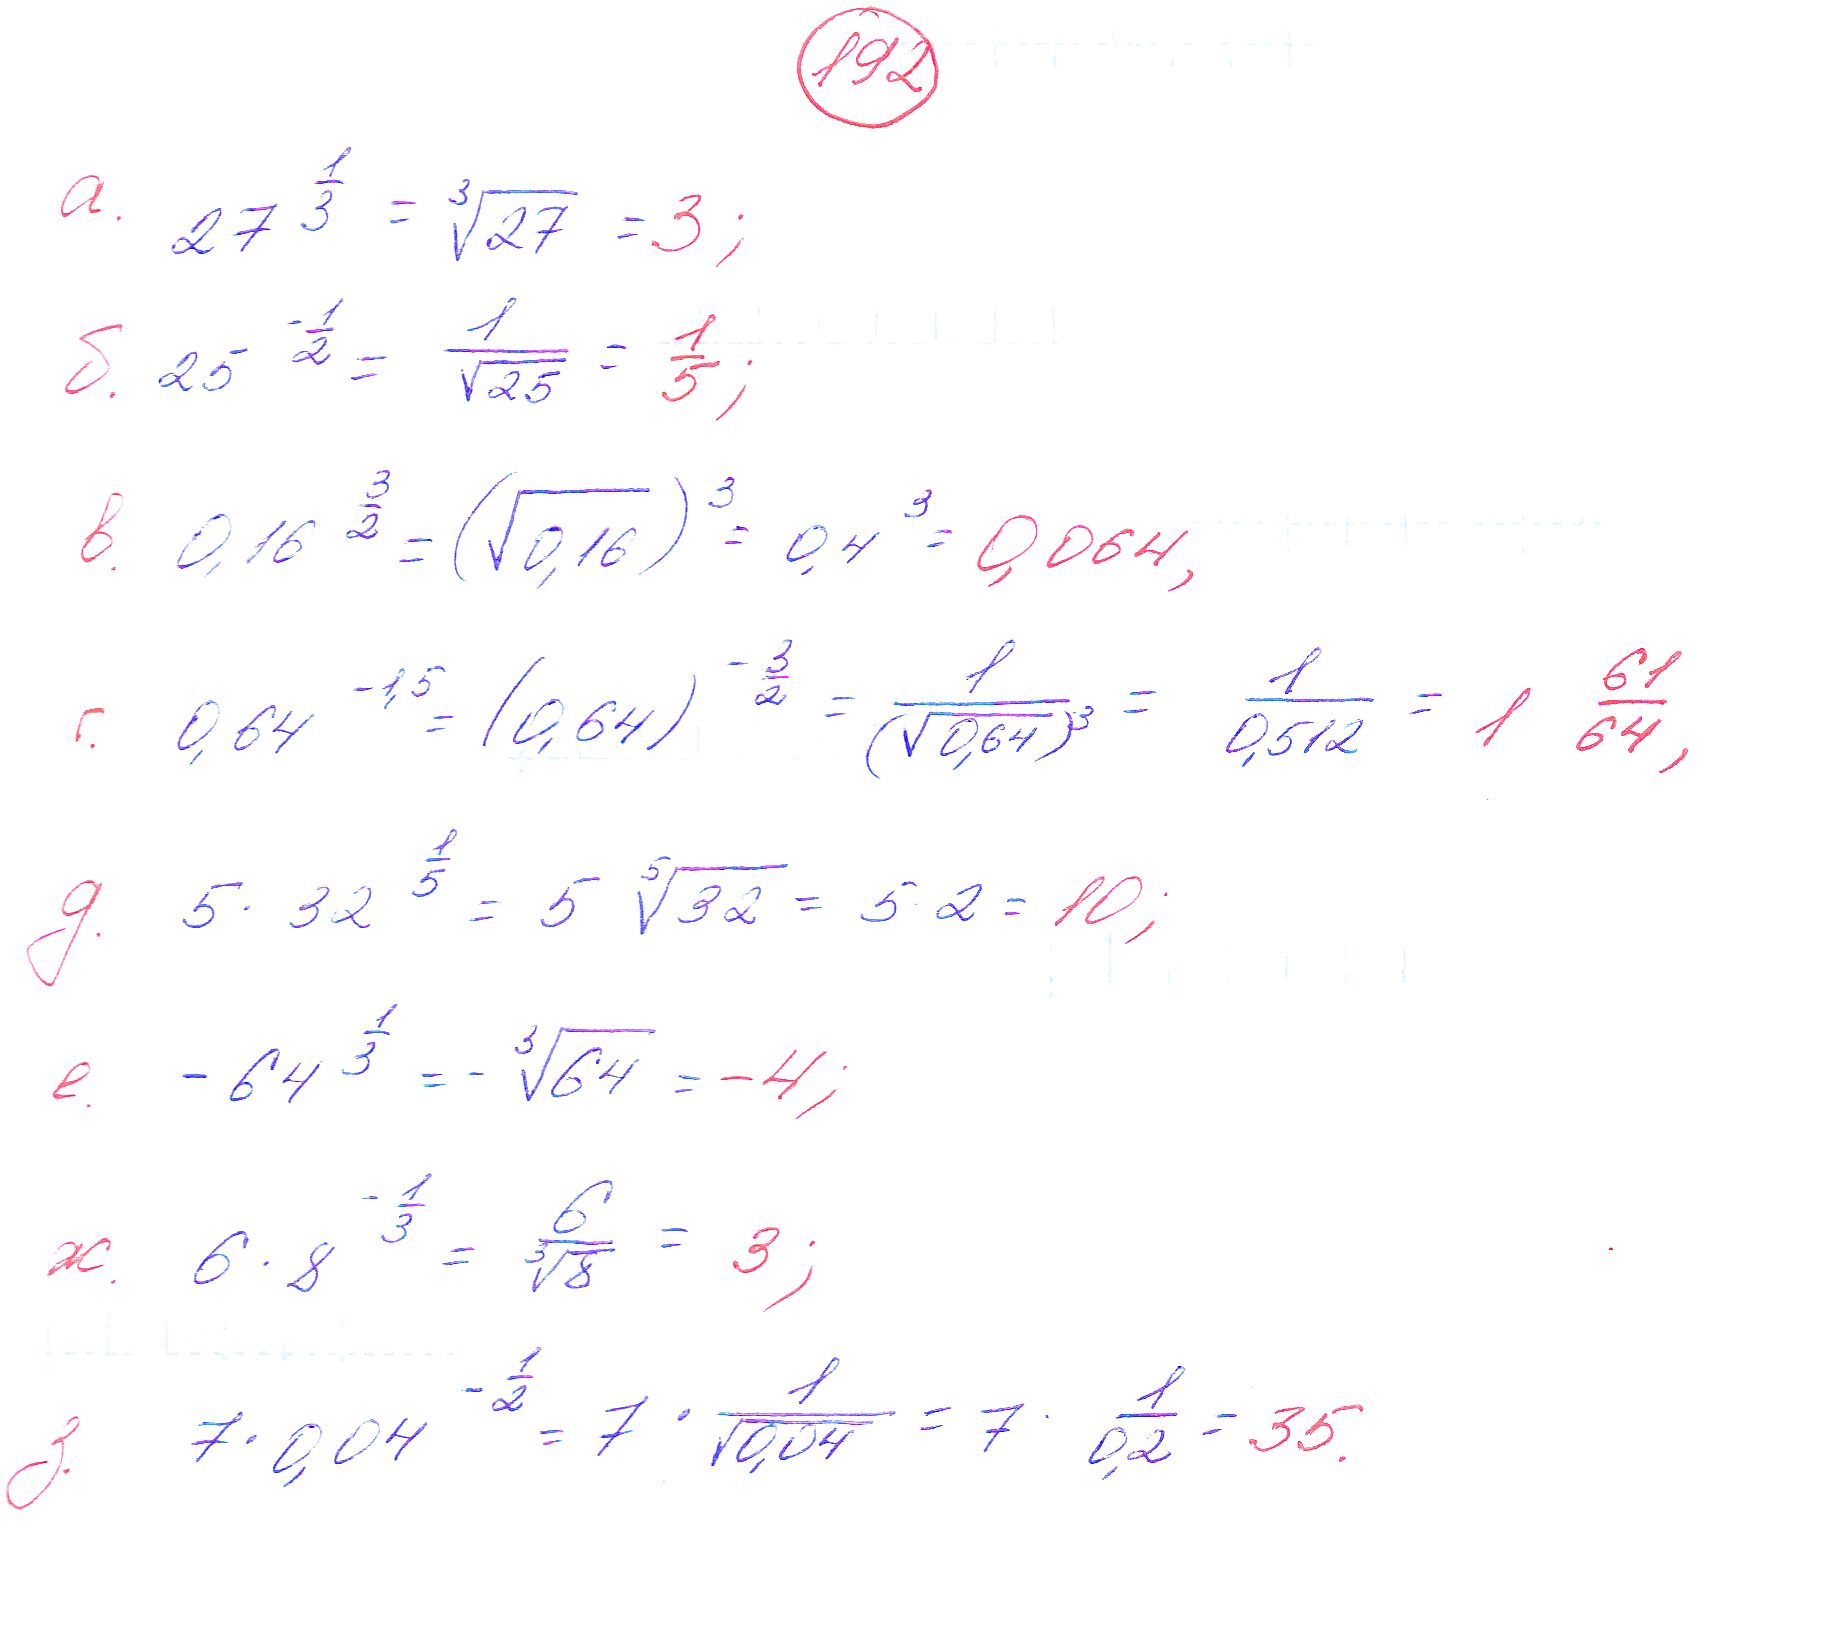 192
а. 27^{1/3} = ∛27 = 3;
б. 25^{-1/2} = 1/√25 = 1/5;
в. 0,16^{3/2} = (√0,16)^3 = 0,4^3 = 0,064,
г. 0,64^{-1,5} = (0,64)^{-3/2} = 1/(√0,64)^3 = 1/0,512 = 1 61/64,
д. 5 · 32^{1/5} = 5 ⁵√32 = 5 · 2 = 10;
е. -64^{1/3} = - ∛64 = -4;
ж. 6 · 8^{-1/3} = 6/∛8 = 3;
з. 7 · 0,04^{-1/2} = 7 · 1/√0,04 = 7 · 1/0,2 = 35.